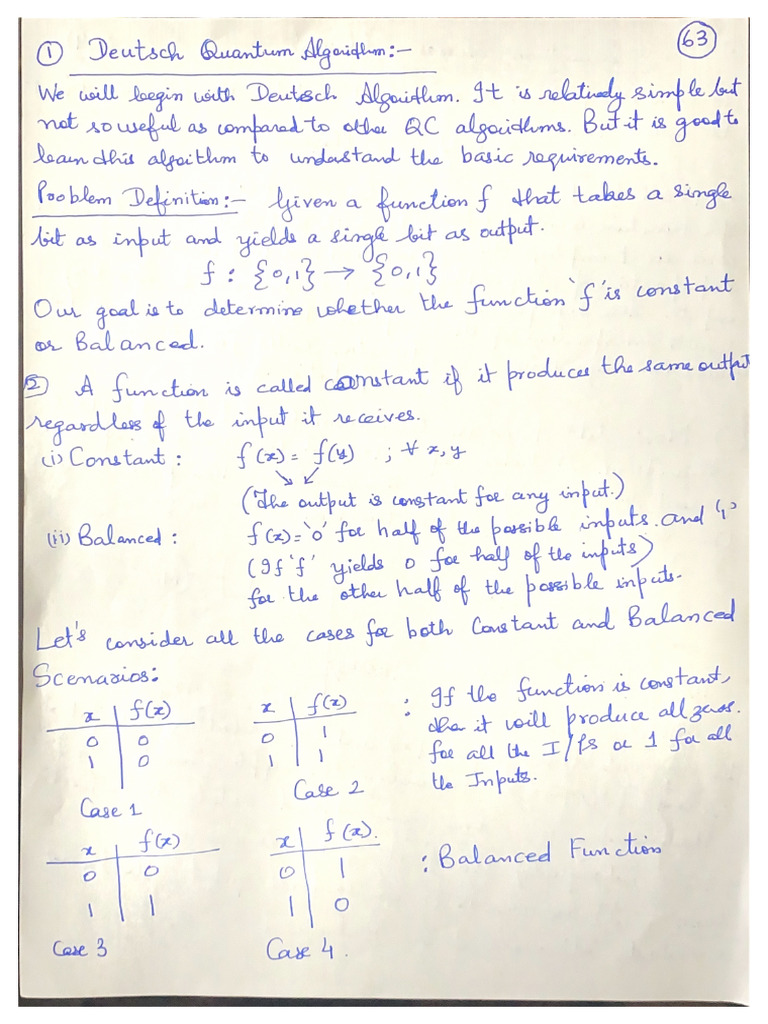 63
① Deutsch Quantum Algorithm:-
We will begin with Deutsch Algorithm. It is relatively simple but
not so useful as compared to other QC algorithms. But it is good to
learn this algorithm to understand the basic requirements.
Problem Definition:- Given a function f that takes a single
bit as input and yields a single bit as output.
f : {0,1} → {0,1}
Our goal is to determine whether the function 'f' is constant
or Balanced.
② A function is called constant if it produces the same output
regardless of the input it receives.
(i) Constant : f(x) = f(y) ; ∀ x, y
(The output is constant for any input.)
(ii) Balanced : f(x)='0' for half of the possible inputs. and '1'
(If 'f' yields 0 for half of the inputs)
for the other half of the possible inputs.
Let's consider all the cases for both Constant and Balanced
Scenarios:
x f(x) x f(x) : If the function is constant,
0 0 0 1 then it will produce all zeros.
1 0 1 1 for all the I/Ps or 1 for all
the Inputs.
Case 1 Case 2
x f(x) x f(x).
0 0 0 1 : Balanced Function
1 1 1 0
Case 3 Case 4.